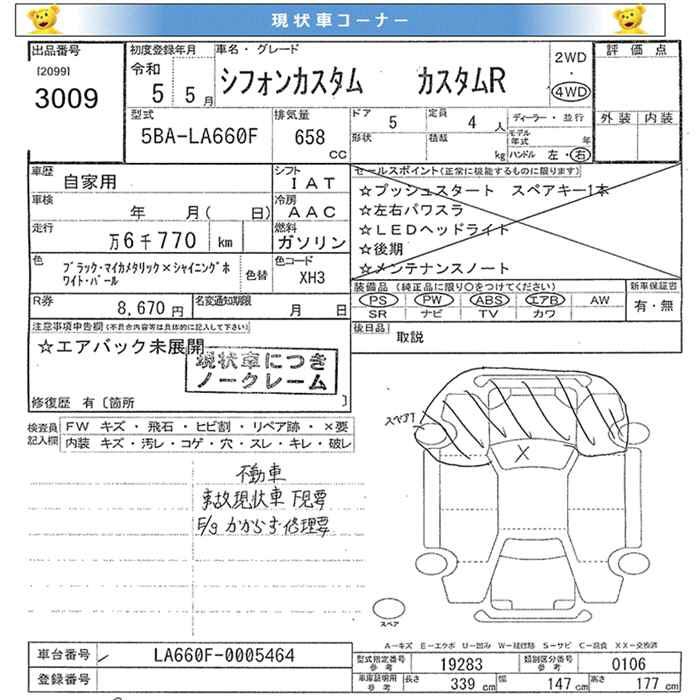 現状車コーナー
出品番号
[2099]
3009
初度登録年月
令和
5 5 月
車名・グレード
シフォンカスタム カスタムR
2WD
・
4WD
評価点
外装 内装
型式
5BA-LA660F
排気量
658
CC
ドア
5
定員
4 人
形状
積載
kg
ディーラー・並行
モデル年式 年
ハンドル 左・右
車歴
自家用
シフト
IAT
車検
年 月( 日)
冷房
AAC
走行
万6千770 km
燃料
ガソリン
色
ブラック・マイカメタリック×シャイニングホ
ワイト・パール
色替
色コード
XH3
R券
8,670円
名変通知期限
月 日
セールスポイント(正常に機能するものに限ります)
☆プッシュスタート スペアキー1本
☆左右パワスラ
☆LEDヘッドライト
☆後期
☆メンテナンスノート
装備品(純正品に限り○をつけてください)
PS PW ABS エアB AW
SR ナビ TV カワ
新車保証書
有・無
後日品
取説
注意事項申告欄(不具合内容等は具体的に記入して下さい)
☆エアバック未展開
現状車につき
ノークレーム
修復歴 有〔箇所 〕
検査員
記入欄
FW キズ・飛石・ヒビ割・リペア跡・×要
内装 キズ・汚レ・コゲ・穴・スレ・キレ・破レ
不動車
事故現状車 下見要
E/g かからず修理要
スペア
X
スペア
A－キズ E－エクボ U－凹ミ W－補修跡 S－サビ C－腐食 XX－交換済
車台番号
LA660F-0005464
登録番号
型式指定番号
参考
19283
類別区分番号
参考
0106
車庫証明用
参考
長さ
339 cm
幅
147 cm
高さ
177 cm